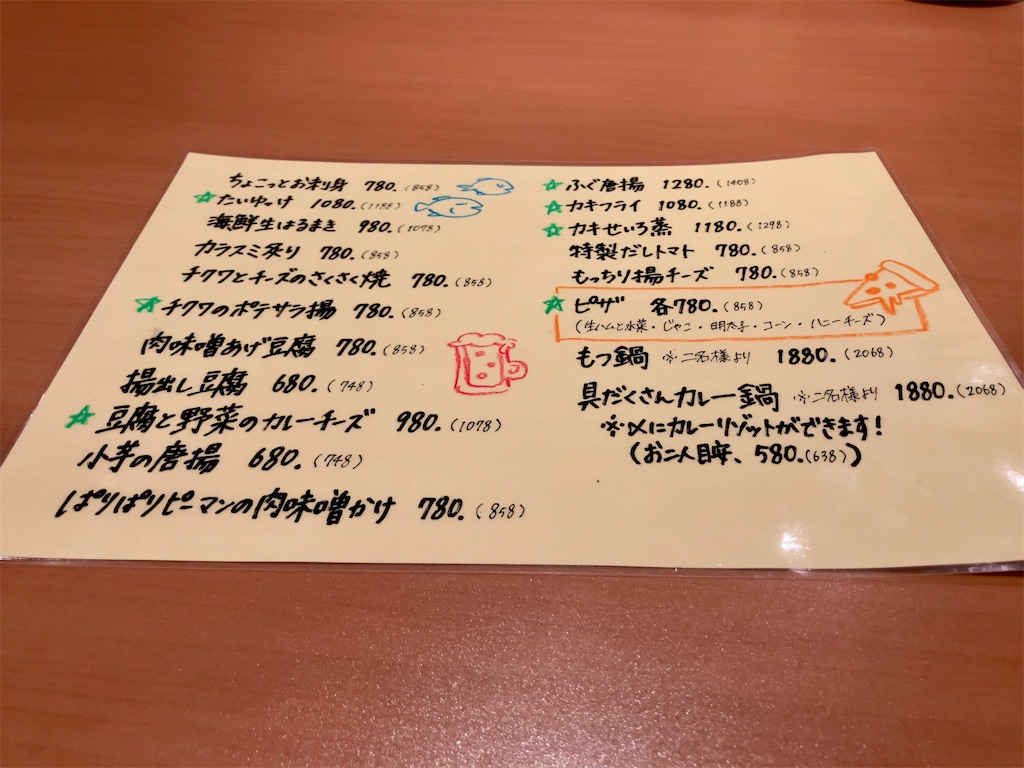 ちょこっとお刺身 780.(858)
☆たいゆっけ 1080.(1188)
海鮮生はるまき 980.(1078)
カラスミ炙り 780.(858)
チクワとチーズのさくさく焼 780.(858)
☆チクワのポテサラ揚 780.(858)
肉味噌あげ豆腐 780.(858)
揚出し豆腐 680.(748)
☆豆腐と野菜のカレーチーズ 980.(1078)
小芋の唐揚 680.(748)
ぱりぱりピーマンの肉味噌かけ 780.(858)
☆ふぐ唐揚 1280.(1408)
☆カキフライ 1080.(1188)
☆カキせいろ蒸 1180.(1298)
特製だしトマト 780.(858)
もっちり揚チーズ 780.(858)
☆ピザ 各780.(858)
(生ハムと水菜・じゃこ・明太子・コーン・ハニーチーズ)
もつ鍋 ※二名様より 1880.(2068)
具だくさんカレー鍋 ※二名様より 1880.(2068)
※〆にカレーリゾットができます!
(お二人目安、580.(638))